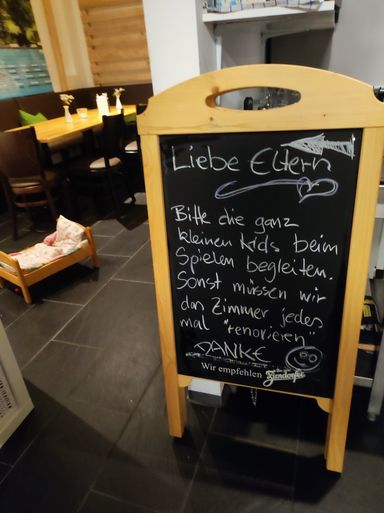 Liebe Eltern
Bitte die ganz
kleinen kids beim
Spielen begleiten.
Sonst müssen wir
das Zimmer jedes
mal "renovieren"
DANKE
Wir empfehlen Ziendorfer